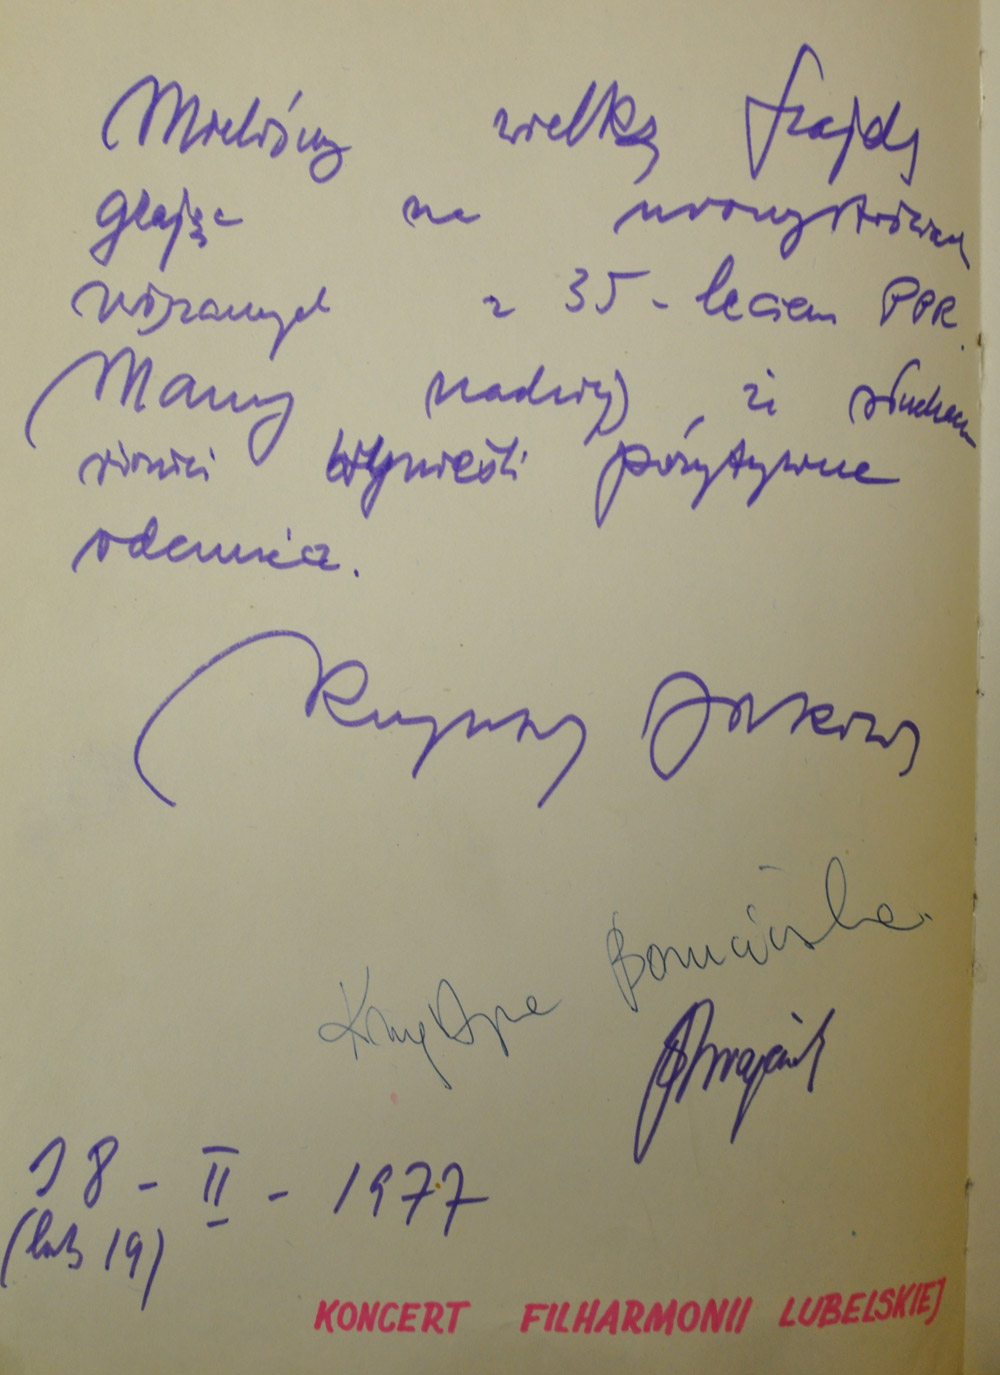 Mieliśmy wielką frajdę
grając na uroczystościach
związanych z 35-leciem PPR.
Mamy nadzieję, że słuchacze
wynieśli pozytywne
odczucia.
Krystyna
18 - II - 1977
(lub 19)
KONCERT FILHARMONII LUBELSKIEJ